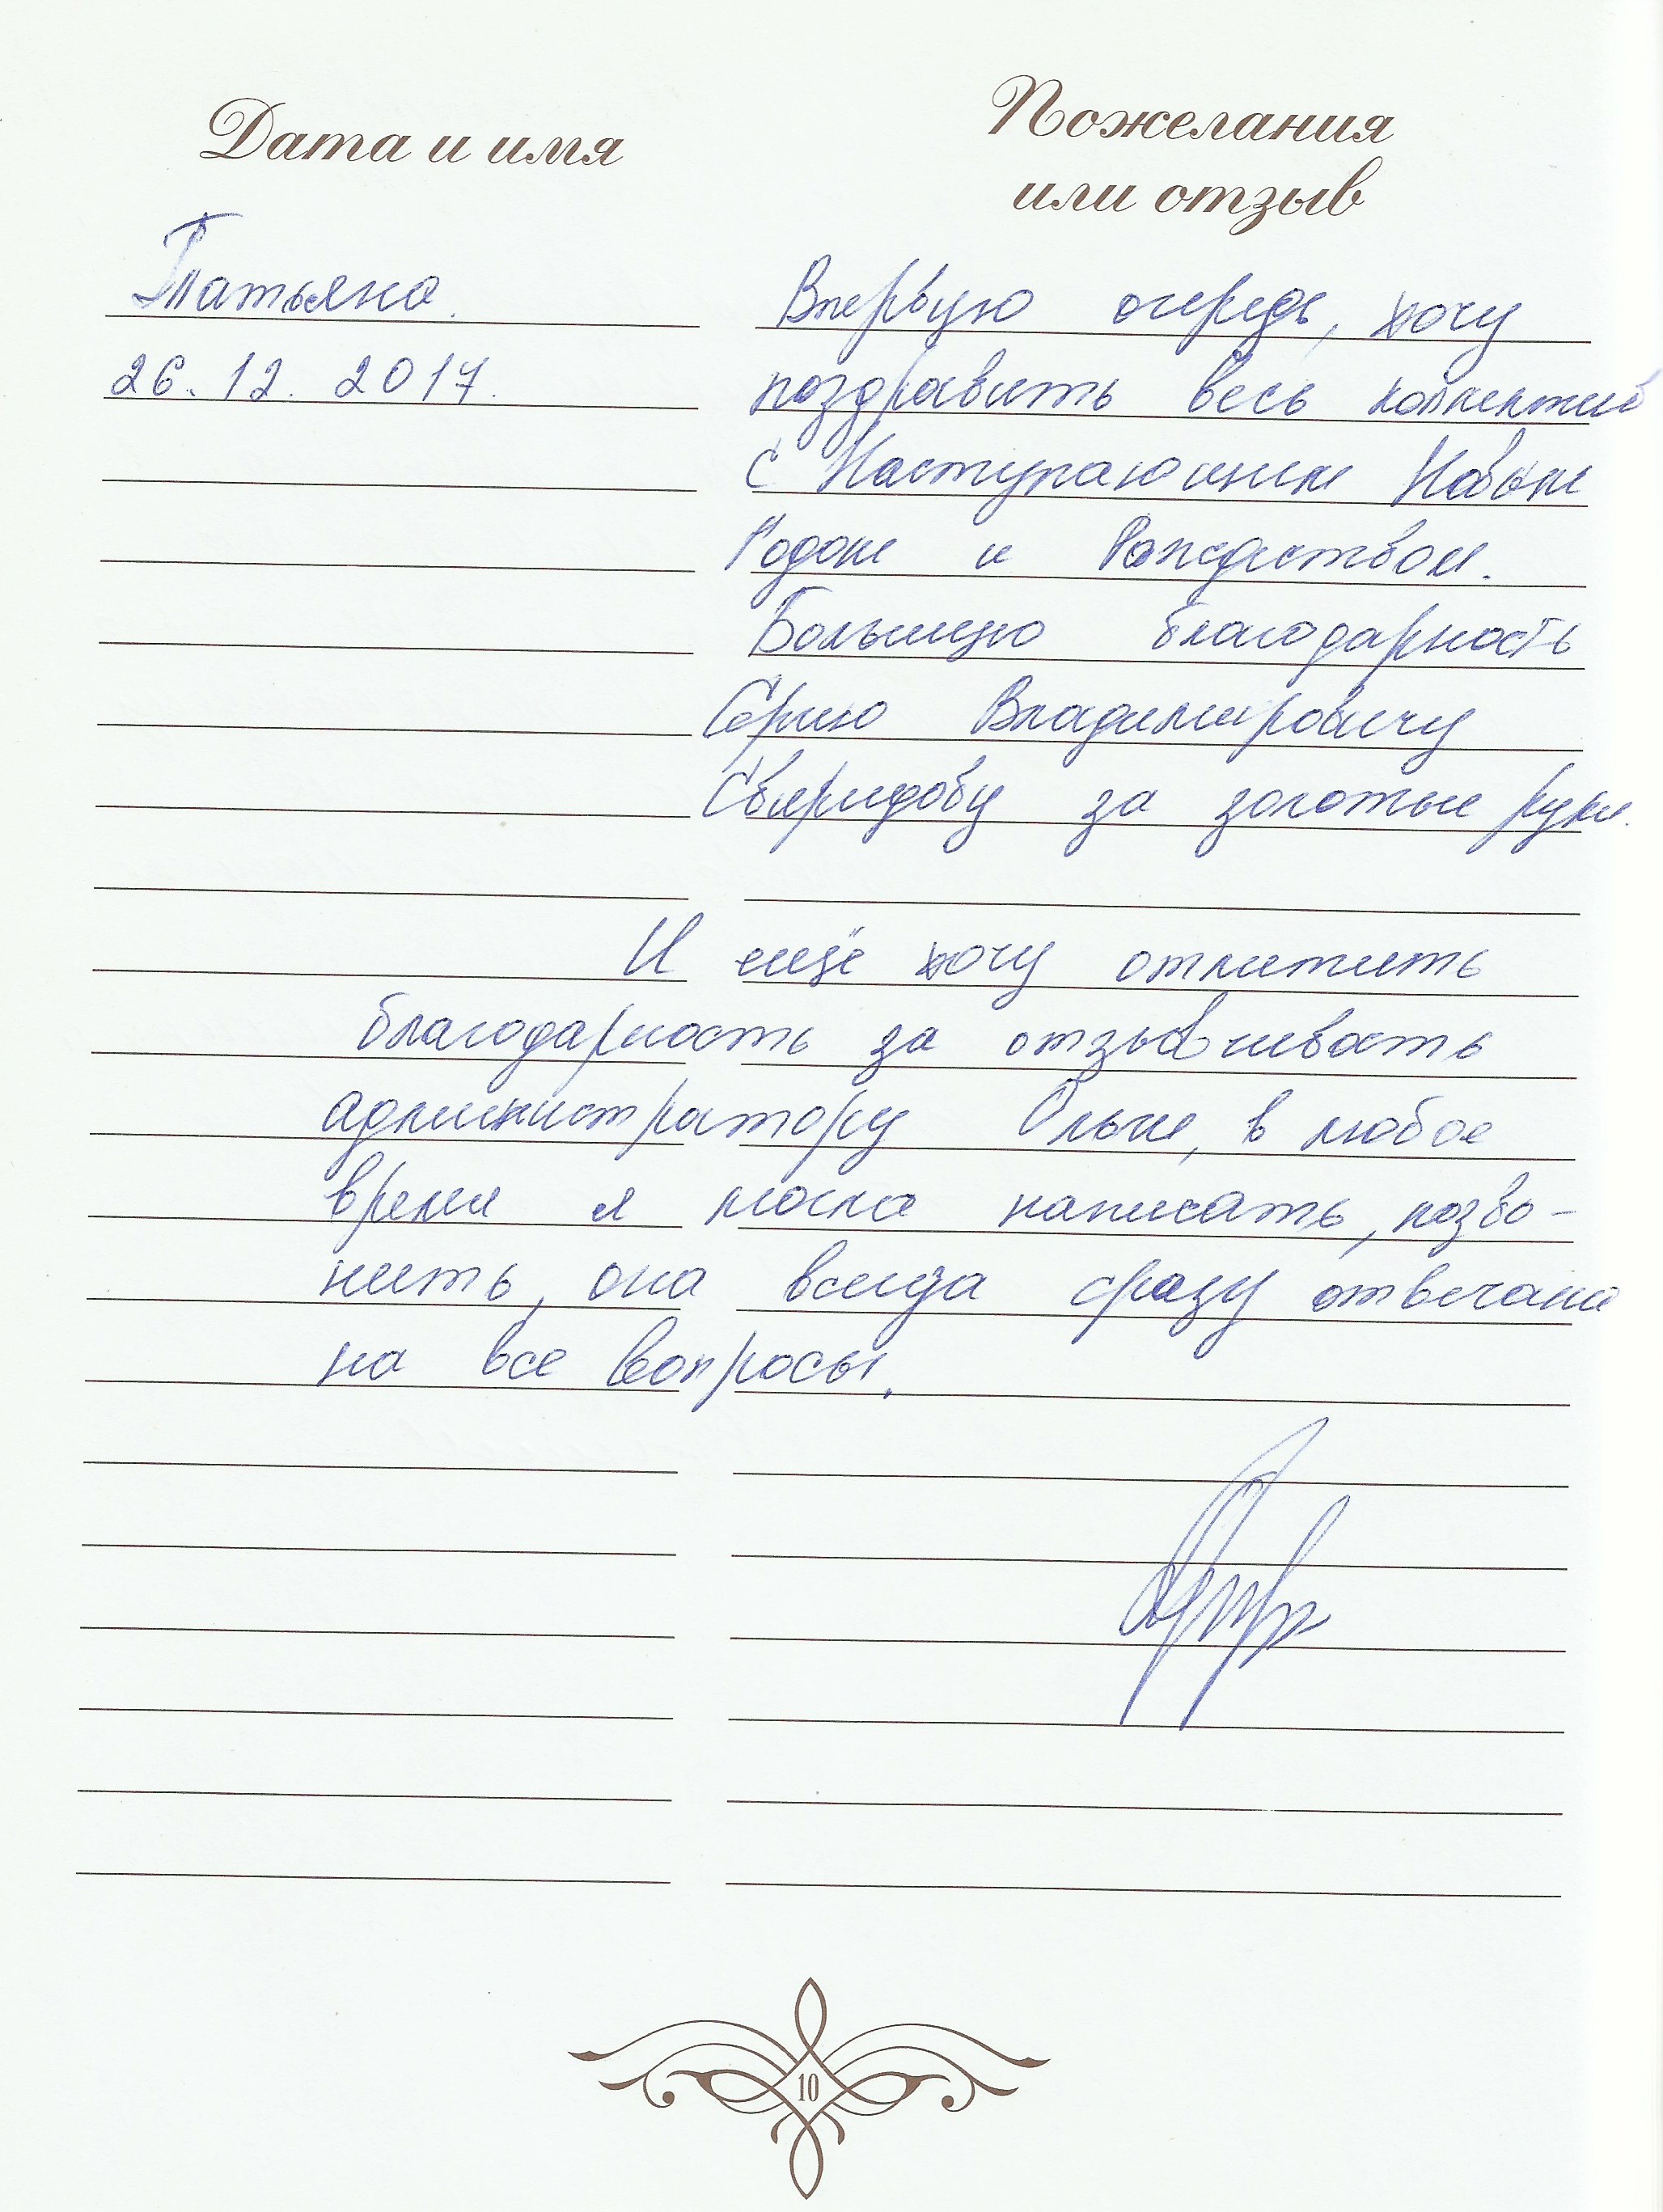 Дата и имя
Пожелания
или отзыв
Татьяна.
26.12.2017.
Впервую очередь, хочу
поздравить весь коллектив
с Наступающим Новым
Годом и Рождеством.
Большую благодарность
Владимировичу
Свиридову за золотые руки.
И ещё хочу отметить
благодарность за отзывчивость
администратору Ольге, в любое
время я могла написать, позво-
нить, она всегда сразу отвечала
на все вопросы.
10